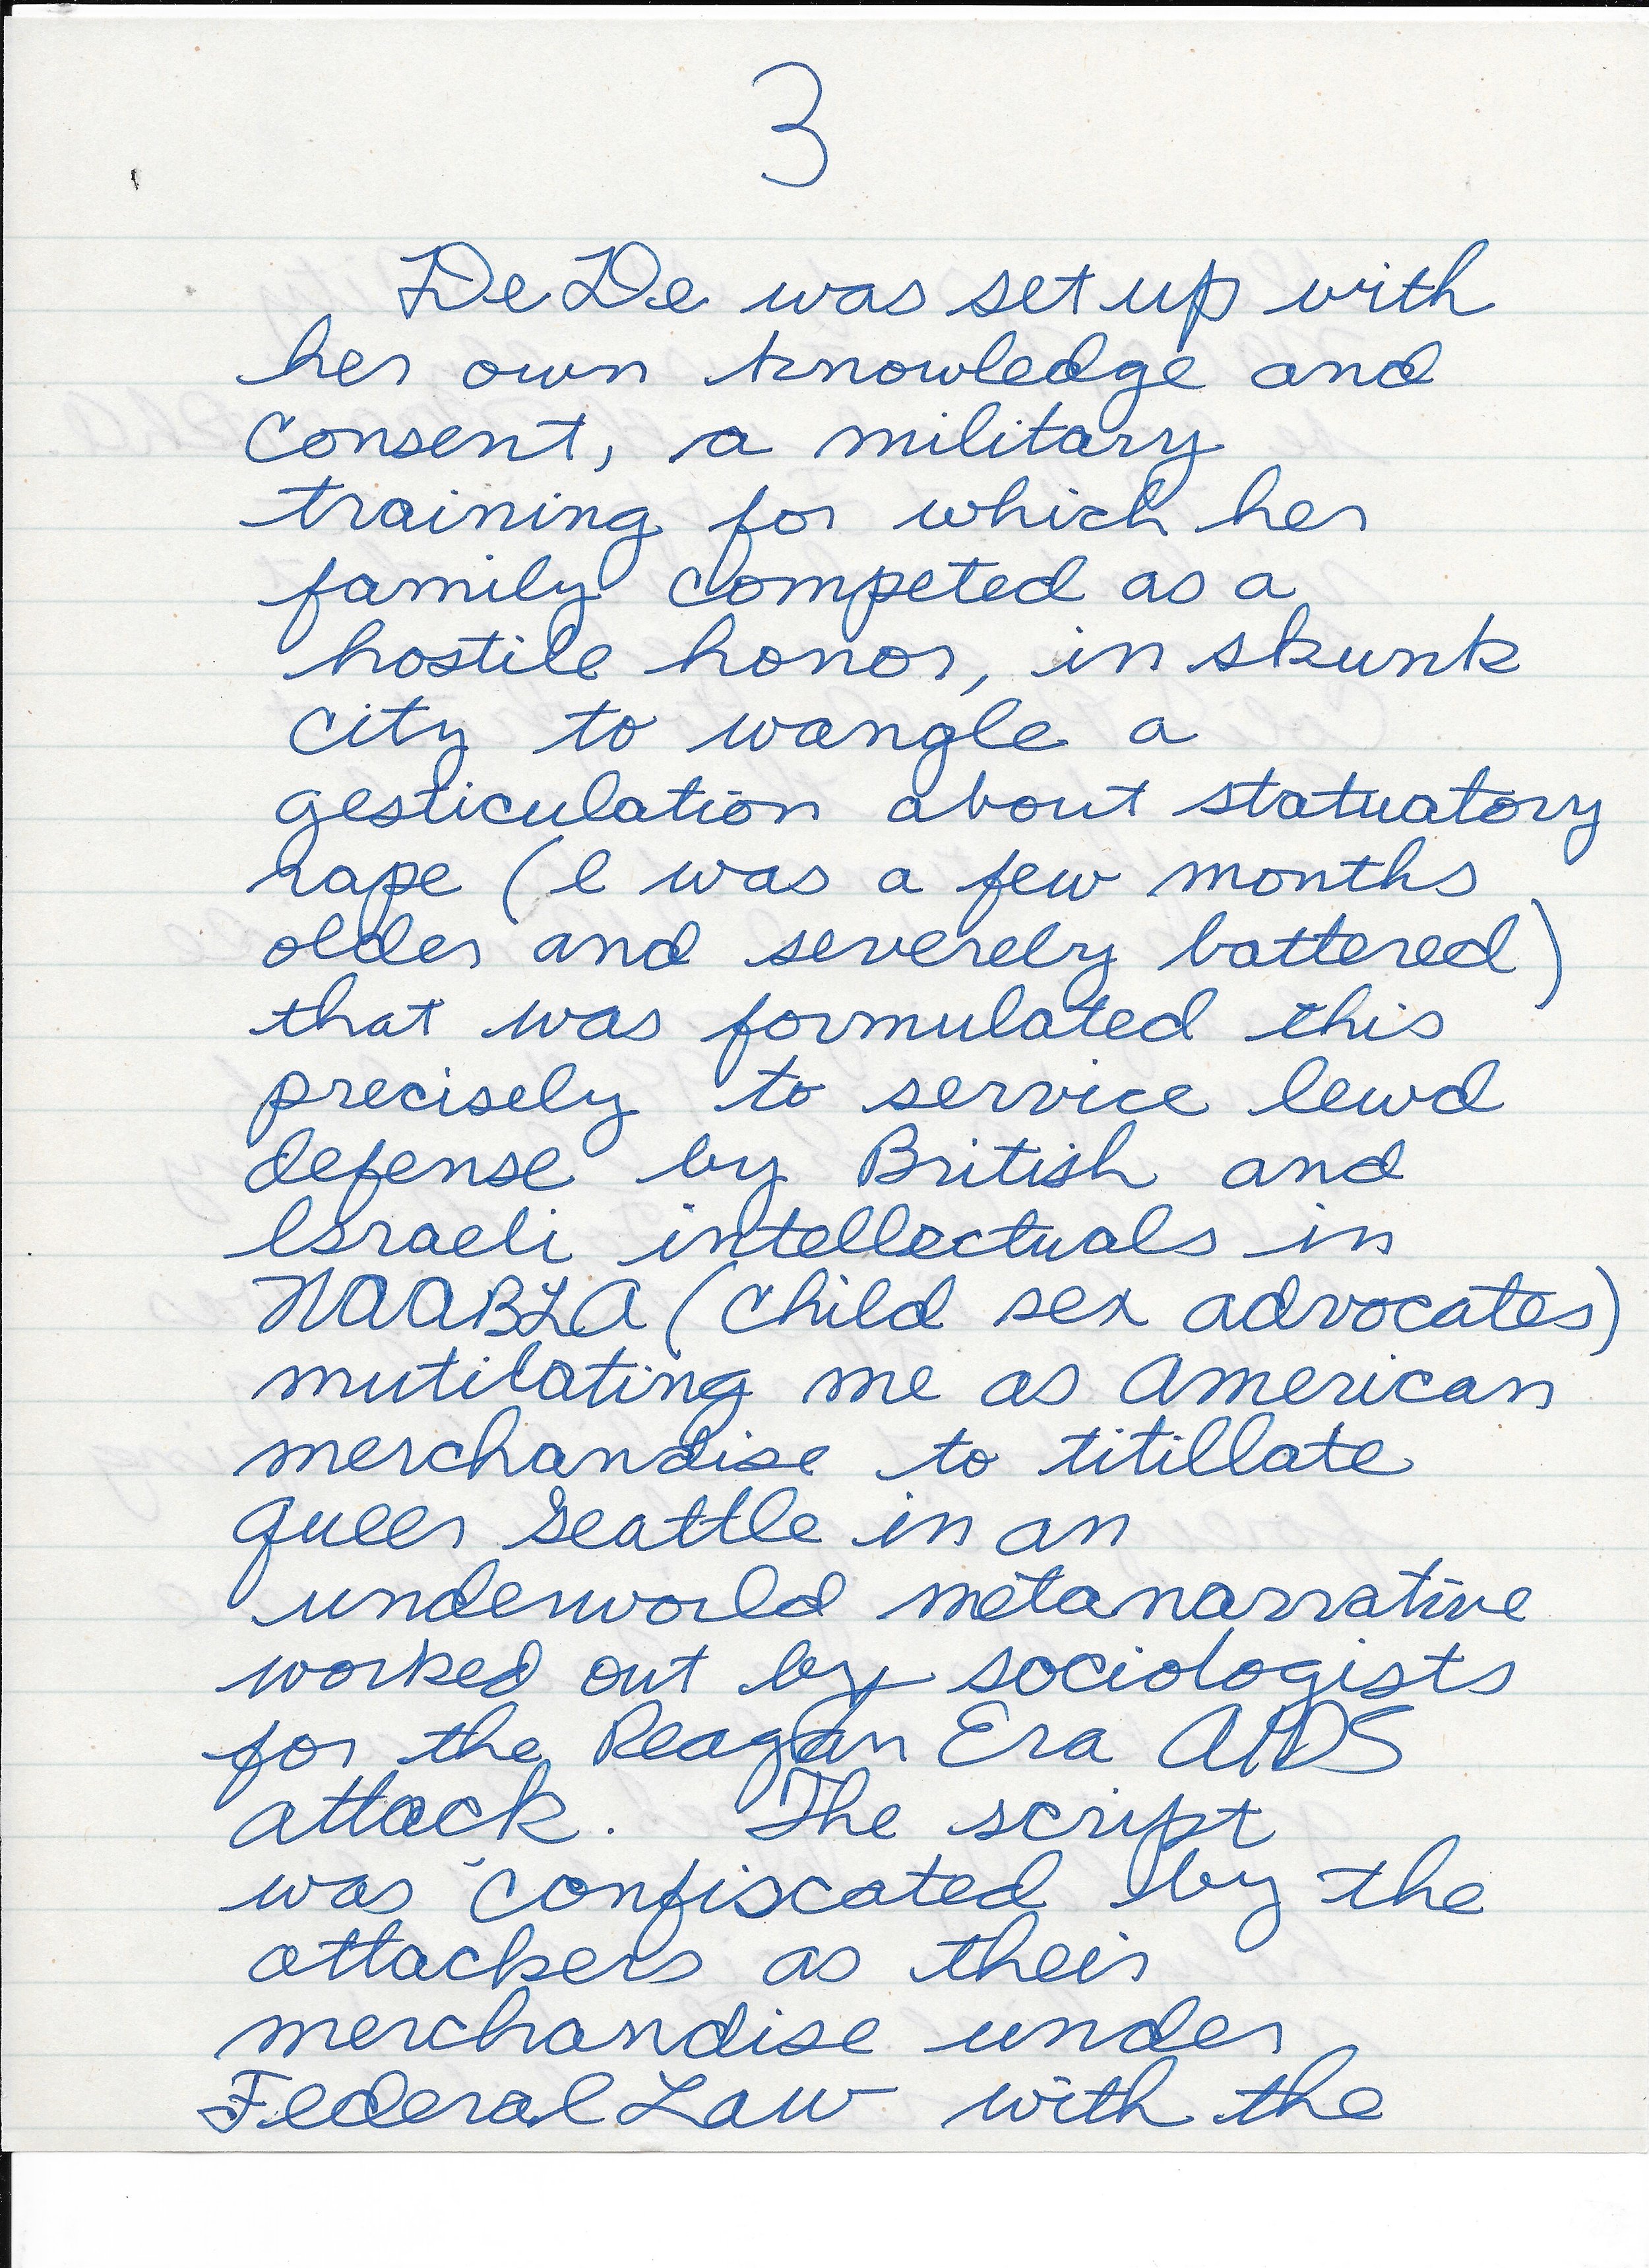 3
DeDe was set up with
her own knowledge and
consent, a military
training for which her
family competed as a
hostile honor, in skunk
city to wangle a
gesticulation about statuatory
rape (I was a few months
older and severely battered)
that was formulated this
precisely to service lewd
defense by British and
Israeli intellectuals in
NAABLA (child sex advocates)
mutilating me as American
merchandise to titillate
queer Seattle in an
underworld metanarrative
worked out by sociologists
for the Reagan Era AIDS
attack. The script
was confiscated by the
attackers as their
merchandise under
Federal Law with the